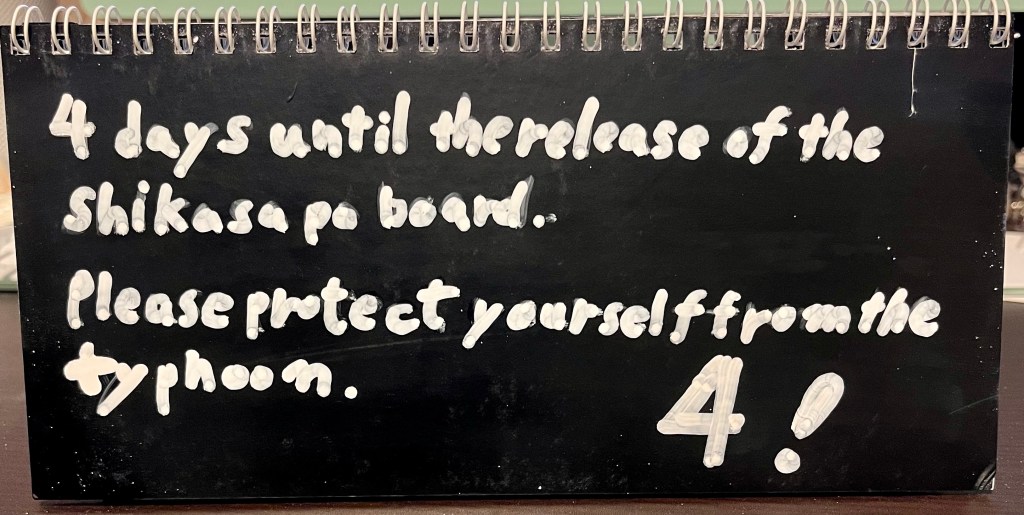 4 days until the release of the
Shikasa po board.
Please protect yourself from the
typhoon.
4!